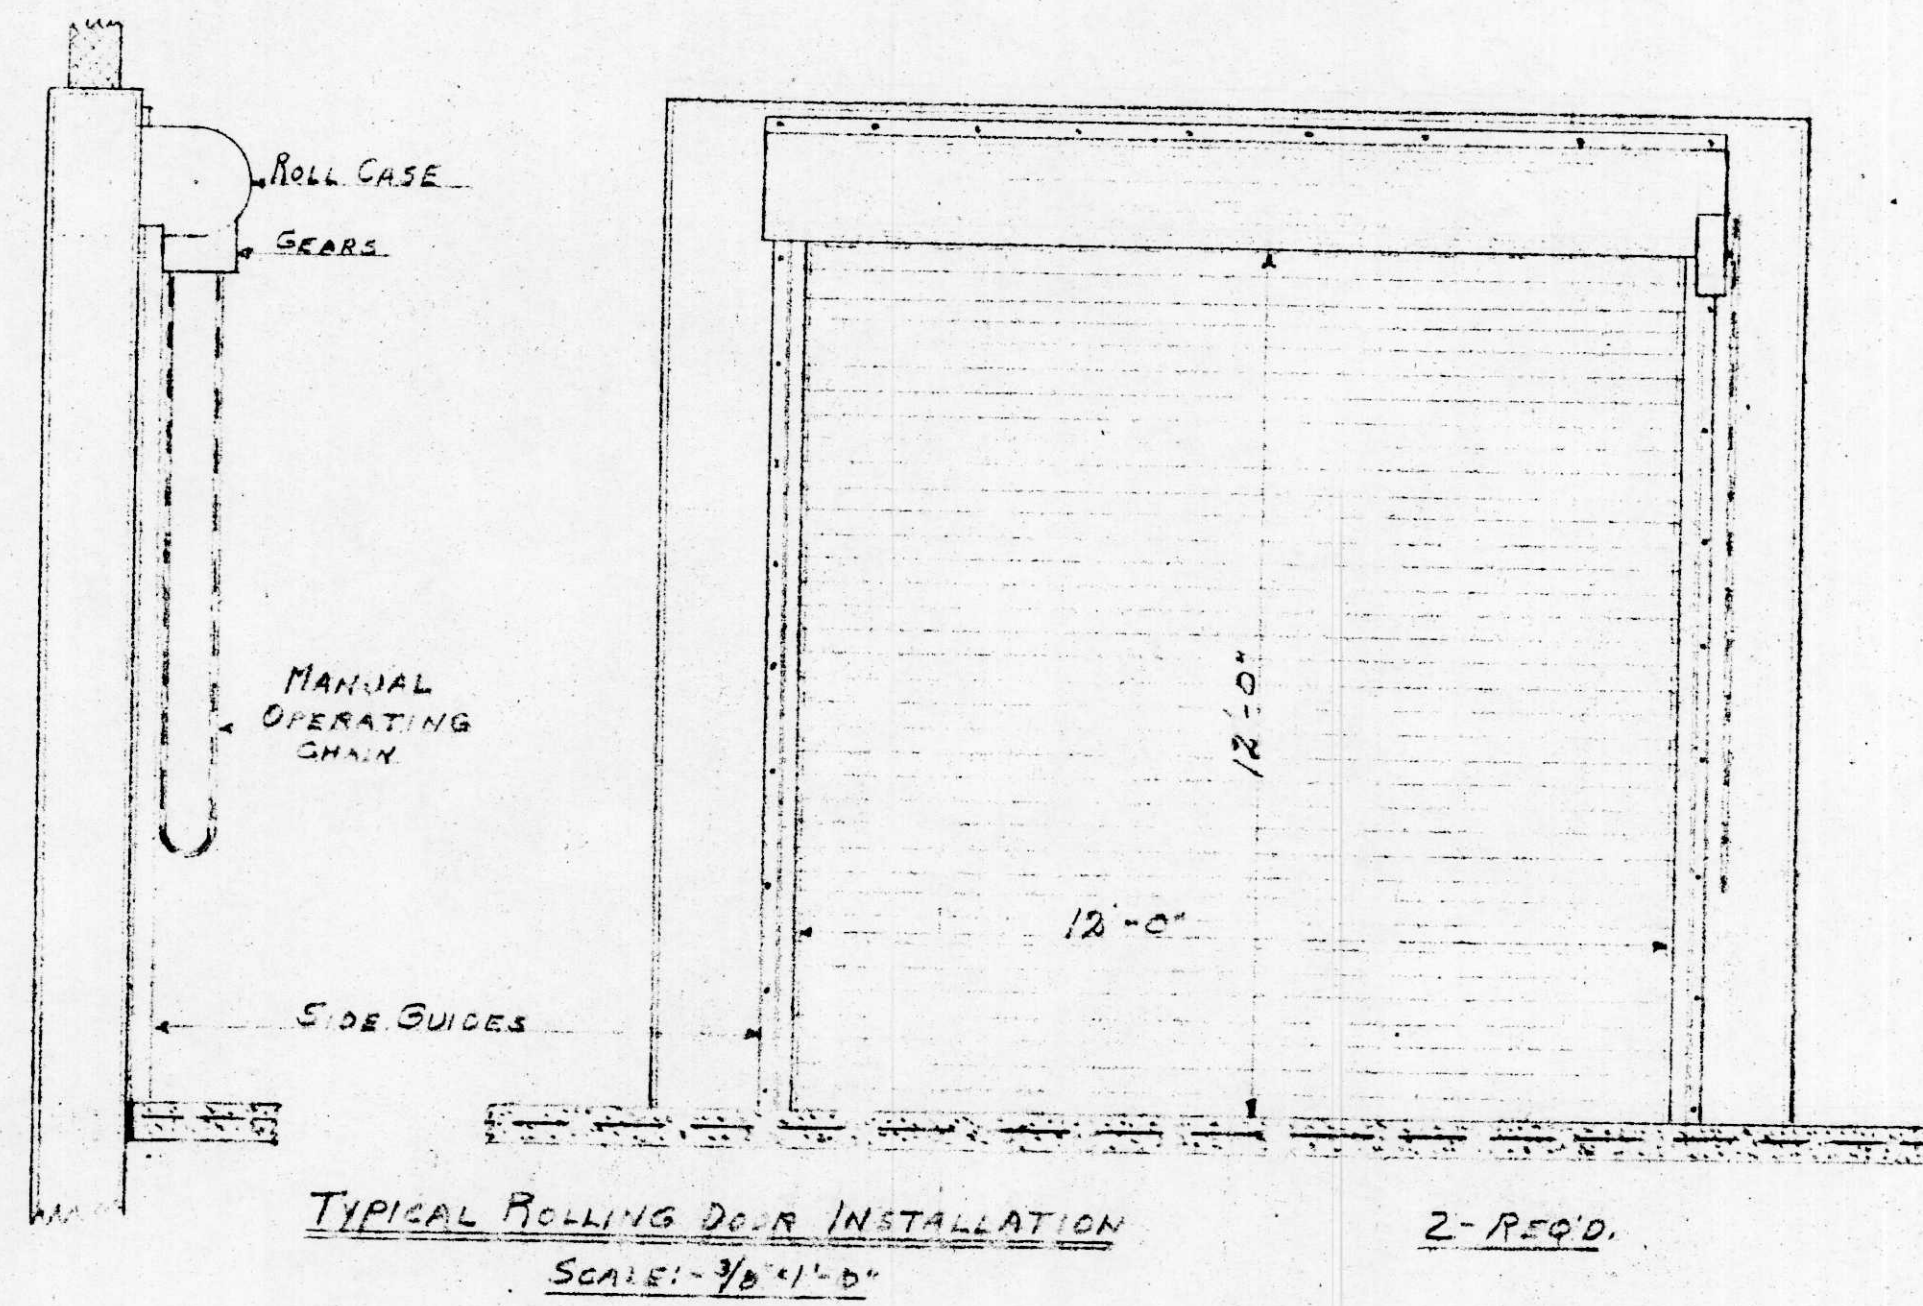 ROLL CASE
GEARS
MANUAL
OPERATING
CHAIN
SIDE GUIDES
12'-0"
12'-0"
TYPICAL ROLLING DOOR INSTALLATION
SCALE:- 3/8"=1'-0"
2- REQ'D.